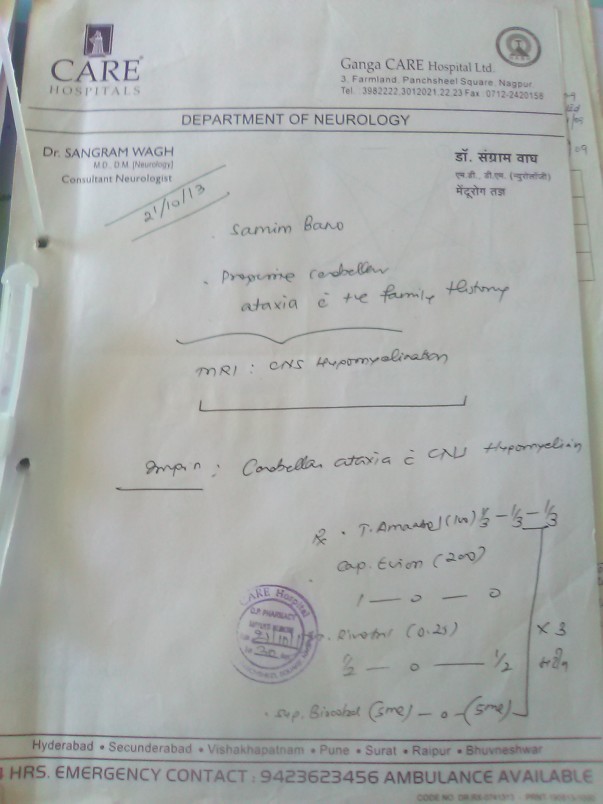 CARE
HOSPITALS
Ganga CARE Hospital Ltd.
3, Farmland, Panchsheel Square, Nagpur.
Tel. : 3982222,3012021,22,23 Fax : 0712-2420156
DEPARTMENT OF NEUROLOGY
Dr. SANGRAM WAGH
M.D., D.M. (Neurology)
Consultant Neurologist
डॉ. संग्राम वाघ
एम.डी., डी.एम. (न्युरोलॉजी)
मेंदूरोग तज्ञ
21/10/13
Samim Bano
cerebellar
ataxia c̄ +ve family History
MRI : CNS Hypomyelination
Impn : Cerebellar ataxia c̄ CNS Hypomyelin
Rx . T. (100) 1/3 - 1/3 - 1/3
Cap. Evion (200)
1 — 0 — 0
Rivotril (0.25)
1/2 — 0 — 1/2
x 3
Syp. (5ml) — 0 — (5ml)
CARE Hospital
Hyderabad • Secunderabad • Vishakhapatnam • Pune • Surat • Raipur • Bhuvneshwar
HRS. EMERGENCY CONTACT : 9423623456 AMBULANCE AVAILABLE